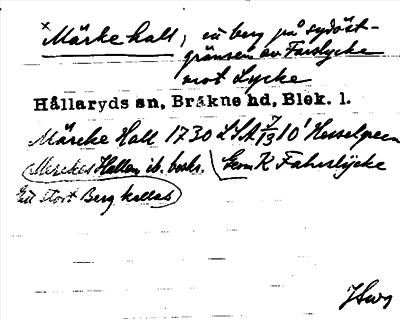 × Märke hall, ett berg på sydöst-
gränsen av Farslycke
mot Lycke
Hållaryds sn, Bräkne hd, Blek. l.
Märcke Hall 1730 LSA 7/13 10¹ Hesselgreen
Merckes Hallen ib. beskr. Geom K Fahrslÿcke
Ett stort Berg kallas